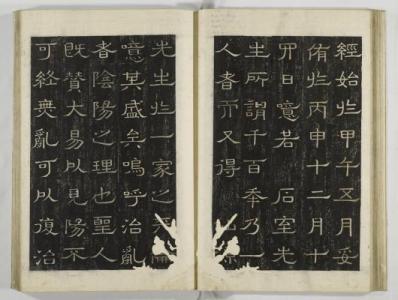 經始於甲午五月妥
侑於丙申十二月十
四日噫若 石室先
生所謂千百秊乃一
人者而又得
先生於一家之
噫其盛矣嗚呼治亂
者陰陽之理也聖人
既贊大易以見陽不
可終無亂可以復治